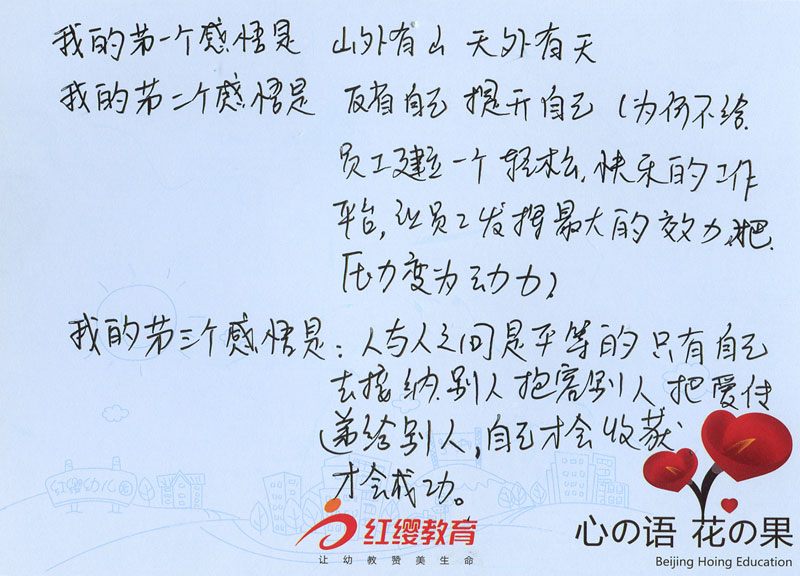 我的第一个感悟是 山外有山 天外有天
我的第二个感悟是 反省自己 提升自己（为何不给
员工建立一个轻松,快乐的工作
平台,让员工发挥最大的效力,把
压力变为动力）
我的第三个感悟是：人与人之间是平等的 只有自己
去接纳别人 抱容别人 把爱传
递给别人,自己才会收获
才会成功。
红缨幼儿园
红缨教育
让幼教赞美生命
心の语 花の果
Beijing Hoing Education